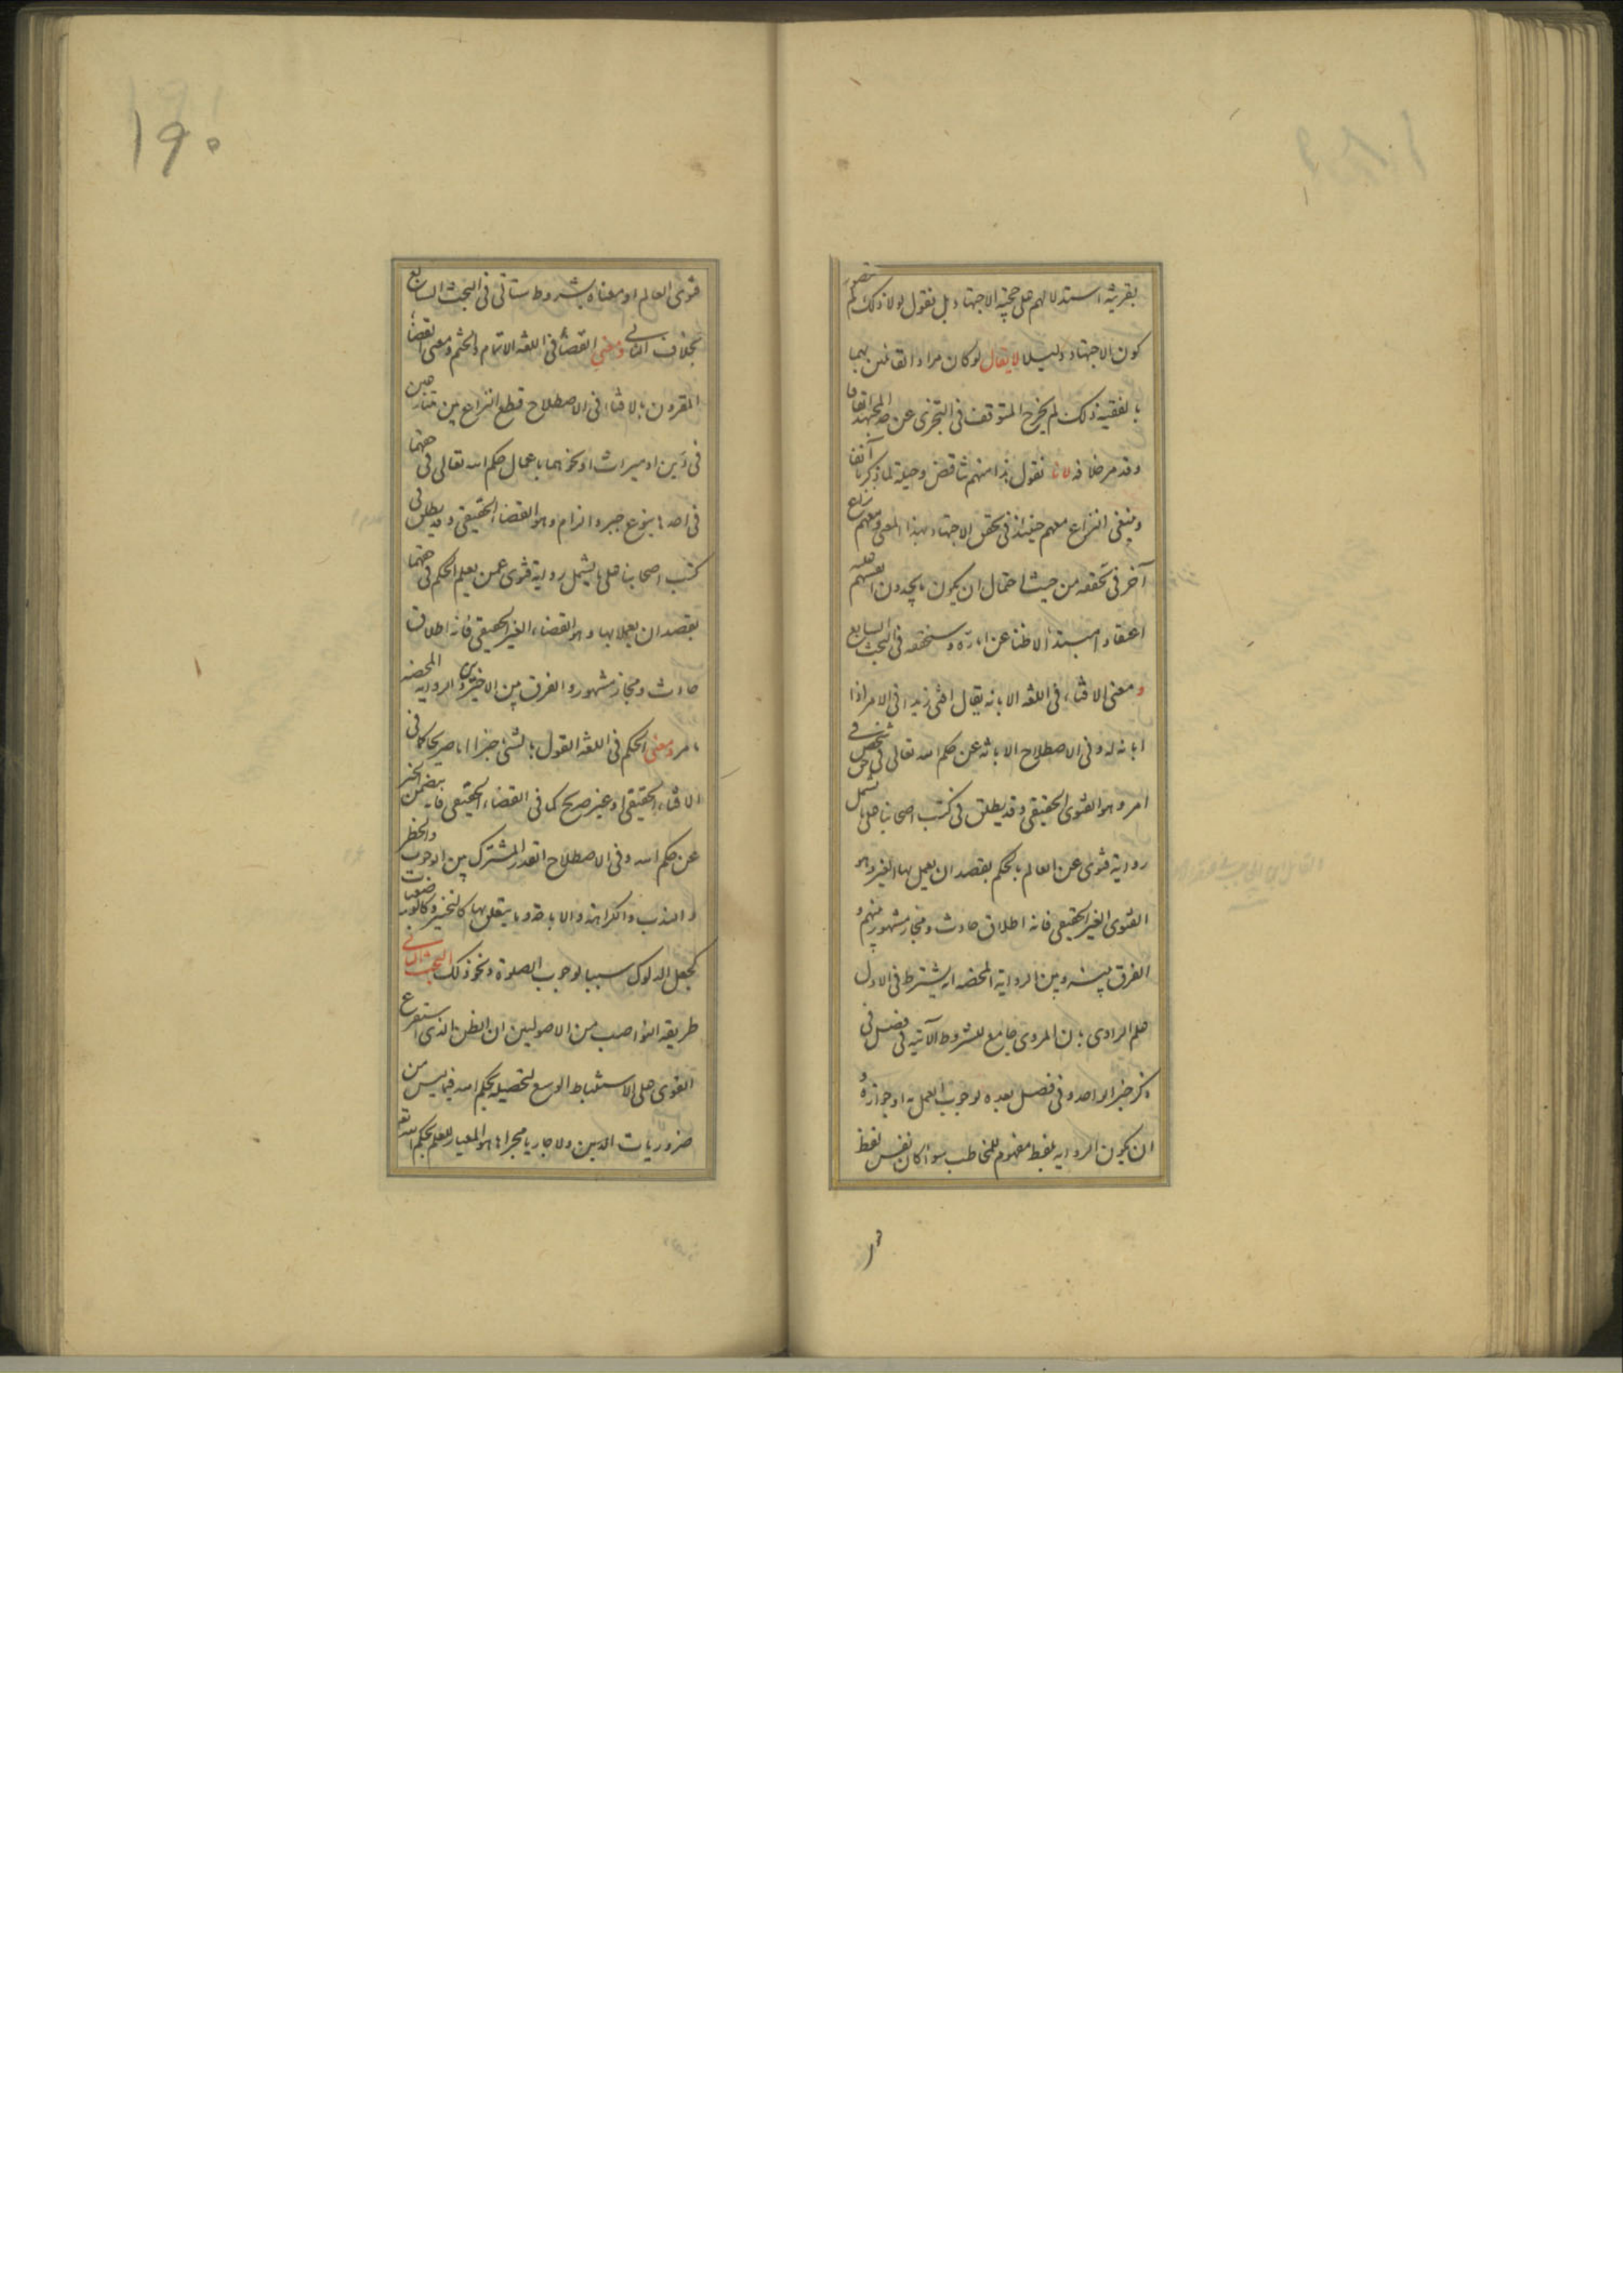 بقرينة استدلالهم على حجية الاجتهاد بل نقول لولا ذلك لم يتصور
كون الاجتهاد دليلا لا يقال لو كان مراد القائلين بهما
بالفقيه ذلك لم يخرج المتوقف في التجزي عن حد المجتهد اتفاقا
وقد مر خلافه لانا نقول هذا منهم تناقض وحيلة لما ذكرنا آنفا
وينبغي النزاع معهم حينئذ في تحقق الاجتهاد بهذا المعنى ومعهم نزاع
آخر في تحققه من حيث احتمال ان يكون ما يجدون انفسهم عليه
اعتقادا مبتدأ لا ظنا عن امارة وسنحققه في البحث السابع
ومعنى الافتاء في اللغة الابانة يقال افتى زيدا في الامر اذا
ابانه له وفي الاصطلاح الابانة عن حكم الله تعالى في شخص في
امر وهو الفتوى الحقيقي وقد يطلق في كتب اصحابنا على ما يشمل
رواية فتوى عن العالم بالحكم بقصد ان يعمل بها الغير وهو
الفتوى الغير الحقيقي فانه اطلاق حادث ومجاز مشهور منهم و
الفرق بينه وبين الرواية المحضة انه يشترط في الاول
علم الراوي بان المروي جامع للشروط الآتية في فصل في
ذكر خبر الواحد وفي فصل بعده لوجوب العمل به او جوازه و
ان يكون الرواية بلفظ مفهوم للمخاطب سواء كان نفس لفظ
١٩٠
فتوى العالم او معناه بشروط ستأتي في البحث السابع
بخلاف الثاني ومعنى القضاء في اللغة الاتمام والختم ومعنى القضاء
المقرون بالافتاء في الاصطلاح قطع النزاع بين متنازعين
في دين او ميراث او نحوهما باعمال حكم الله تعالى في حقهما
في احدها بنوع جبر والزام وهو القضاء الحقيقي وقد يطلق في
كتب اصحابنا على ما يشمل رواية فتوى عمن يعلم الحكم في حقهما
بقصد ان يعملا بها وهو القضاء الغير الحقيقي فانه اطلاق
حادث ومجاز مشهور والفرق بين الاخيرين والرواية المحضة
ما مر ومعنى الحكم في اللغة القول بالشيء جزما اما صريحا كما في
الافتاء الحقيقي او غير صريح كما في القضاء الحقيقي فانه يتضمن الخبر
عن حكم الله وفي الاصطلاح القدر المشترك بين الوجوب والحظر
والندب والكراهة والاباحة وما يتعلق بها كالتخيير وكالوضعيات
كجعل الدلوك سببا لوجوب الصلوة ونحو ذلك البحث الثاني
طريقة النواصب من الاصوليين ان الظن الذي استفرغ
القوى على الاستنباط الوسع لتحصيله بحكم الله فيما ليس من
ضروريات الدين ولا جاريا مجراها هو المعيار للعلم بحكم الله تع